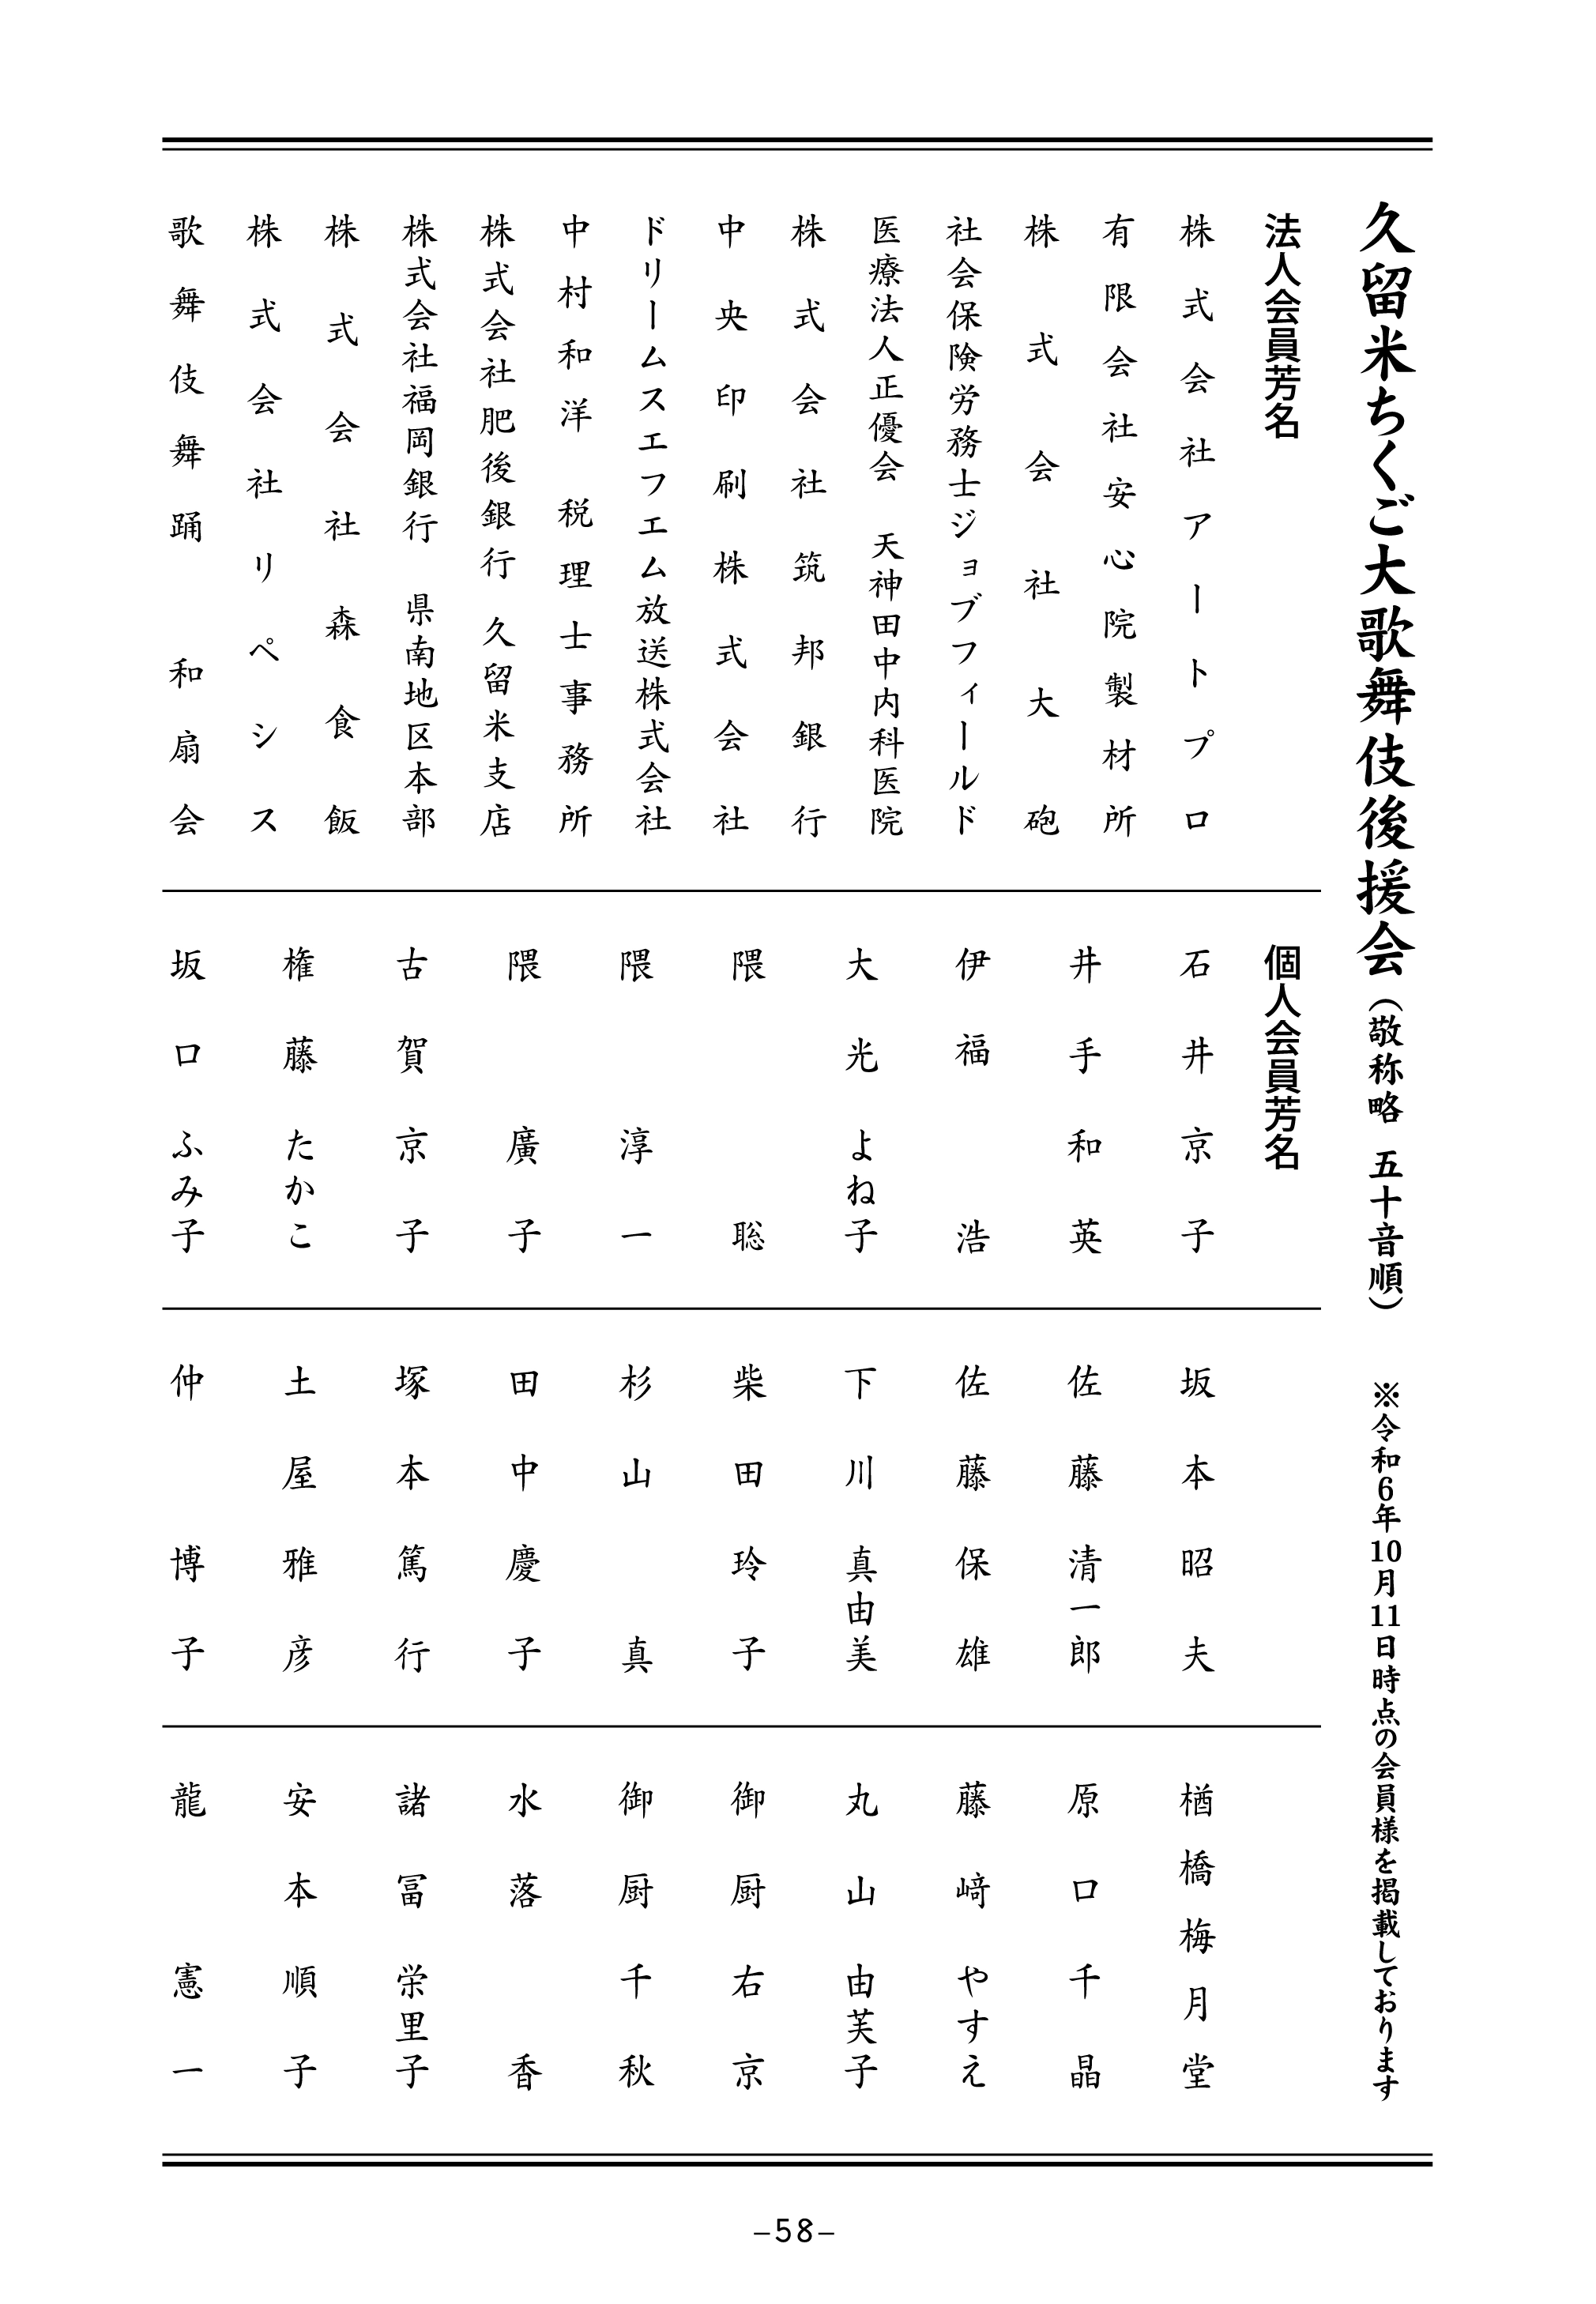 久留米ちくご大歌舞伎後援会（敬称略 五十音順） ※令和6年10月11日時点の会員様を掲載しております
法人会員芳名
株式会社アートプロ
有限会社安心院製材所
株式会社大砲
社会保険労務士ジョブフィールド
医療法人正優会 天神田中内科医院
株式会社筑邦銀行
中央印刷株式会社
ドリームスエフエム放送株式会社
中村和洋 税理士事務所
株式会社肥後銀行 久留米支店
株式会社福岡銀行 県南地区本部
株式会社森食飯
株式会社リペシス
歌舞伎舞踊 和扇会
個人会員芳名
石井京子
井手和英
伊福 浩
大光よね子
隈 聡
隈 淳一
隈 廣子
古賀京子
権藤たかこ
坂口ふみ子
坂本昭夫
佐藤清一郎
佐藤保雄
下川真由美
柴田玲子
杉山 真
田中慶子
塚本篤行
土屋雅彦
仲 博子
楢橋梅月堂
原口千晶
藤﨑やすえ
丸山由芙子
御厨右京
御厨千秋
水落 香
諸冨栄里子
安本順子
龍 憲一
–58–